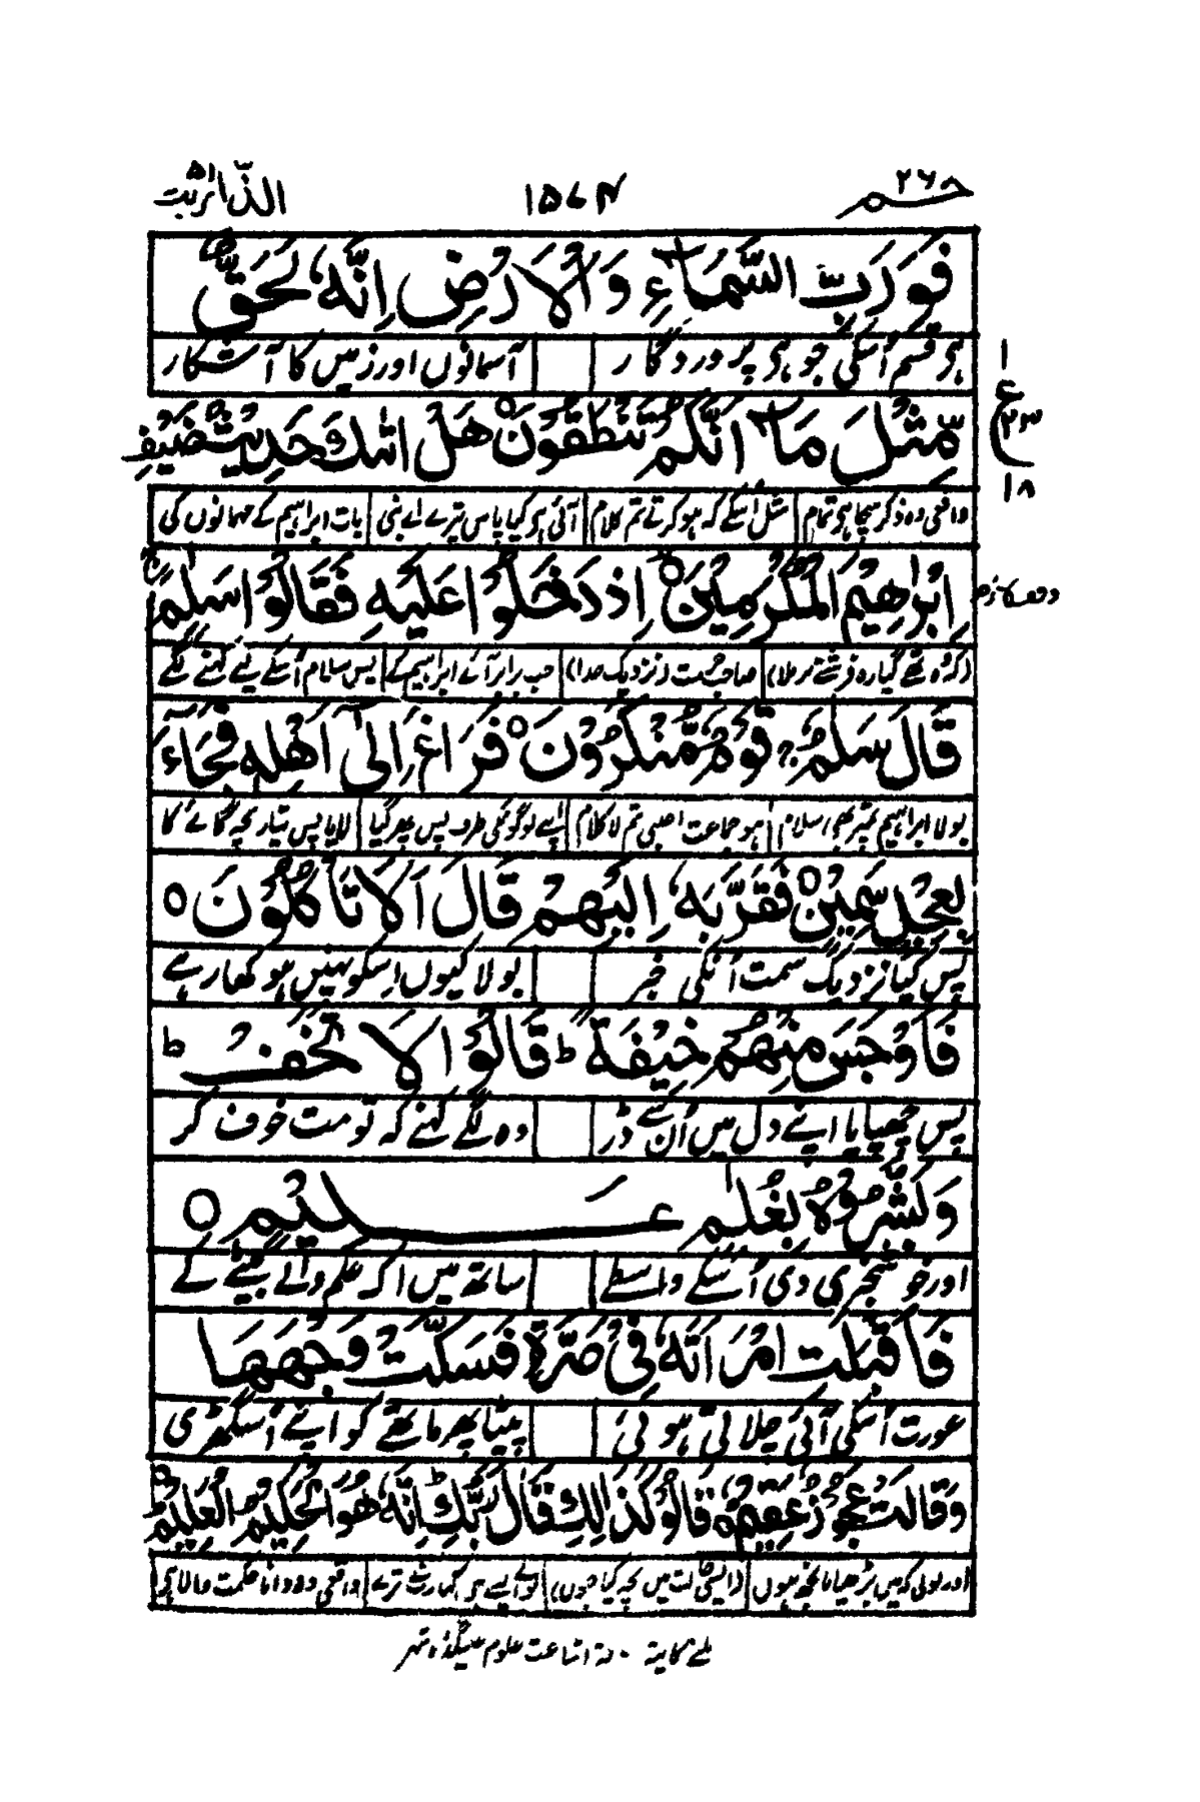 حٰمٓ ۲۶ ۱۵۷۴ الذّٰریٰت ۵۱
فَوَرَبِّ السَّمَآءِ وَالْاَرْضِ اِنَّهٗ لَحَقٌّ
ہی قسم اُسکی جو ہی پروردگار آسمانوں اور زمیں کا آشکار
مِّثْلَ مَآ اَنَّكُمْ تَنْطِقُوْنَ ○ هَلْ اَتٰىكَ حَدِيْثُ ضَيْفِ
۱ ع ۲۳ ۱۸
واقعی وہ ذکر سچا ہی تمام مثل اسکے کہ ہو کرتے تم کلام آئی ہی کیا پاس تیرے اے نبی بات ابراہیم کے مہمانوں کی
اِبْرٰهِيْمَ الْمُكْرَمِيْنَ ○ اِذْ دَخَلُوْا عَلَيْهِ فَقَالُوْا سَلٰمًا
پس سلام اُسکے لیے کہنے لگے
قَالَ سَلٰمٌ ۚ قَوْمٌ مُّنْكَرُوْنَ ○ فَرَاغَ اِلٰٓى اَهْلِهٖ فَجَآءَ
بولا ابراہیم تمپر بھی سلام ہو جماعت اجنبی تم لا کلام اپنے لوگونکی طرف پس پھر گیا لایا پس تیار بچہ گائے کا
بِعِجْلٍ سَمِيْنٍ ○ فَقَرَّبَهٗٓ اِلَيْهِمْ قَالَ اَلَا تَاْكُلُوْنَ ○
پس کیا نزدیک سمت اُنکی خبر بولا کیوں اِسکو نہیں ہو کھا رہے
فَاَوْجَسَ مِنْهُمْ خِيْفَةً ؕ قَالُوْا لَا تَخَفْ ؕ
پس چھپایا اپنے دل میں اُن سے ڈر وہ لگے کہنے کہ تو مت خوف کر
وَبَشَّرُوْهُ بِغُلٰمٍ عَلِيْمٍ ○
اور خوشخبری دی اُسکے واسطے ساتھ میں اک علم والے بیٹے کے
فَاَقْبَلَتِ امْرَاَتُهٗ فِيْ صَرَّةٍ فَصَكَّتْ وَجْهَهَا
عورت اُسکی آئی چلاتی ہوئی پیٹا پھر ماتھے کو اپنے اُس گھڑی
وَقَالَتْ عَجُوْزٌ عَقِيْمٌ ○ قَالُوْا كَذٰلِكِ قَالَ رَبُّكِ ؕ اِنَّهٗ هُوَ الْحَكِيْمُ الْعَلِيْمُ ○
اور بولی کہ میں بڑھیا بانجھ ہوں (ایسی حالت میں بچہ کیا جوں) بولے ایسے ہی کہا رب نے ترے واقعی وہ دانا حکمت والا ہی